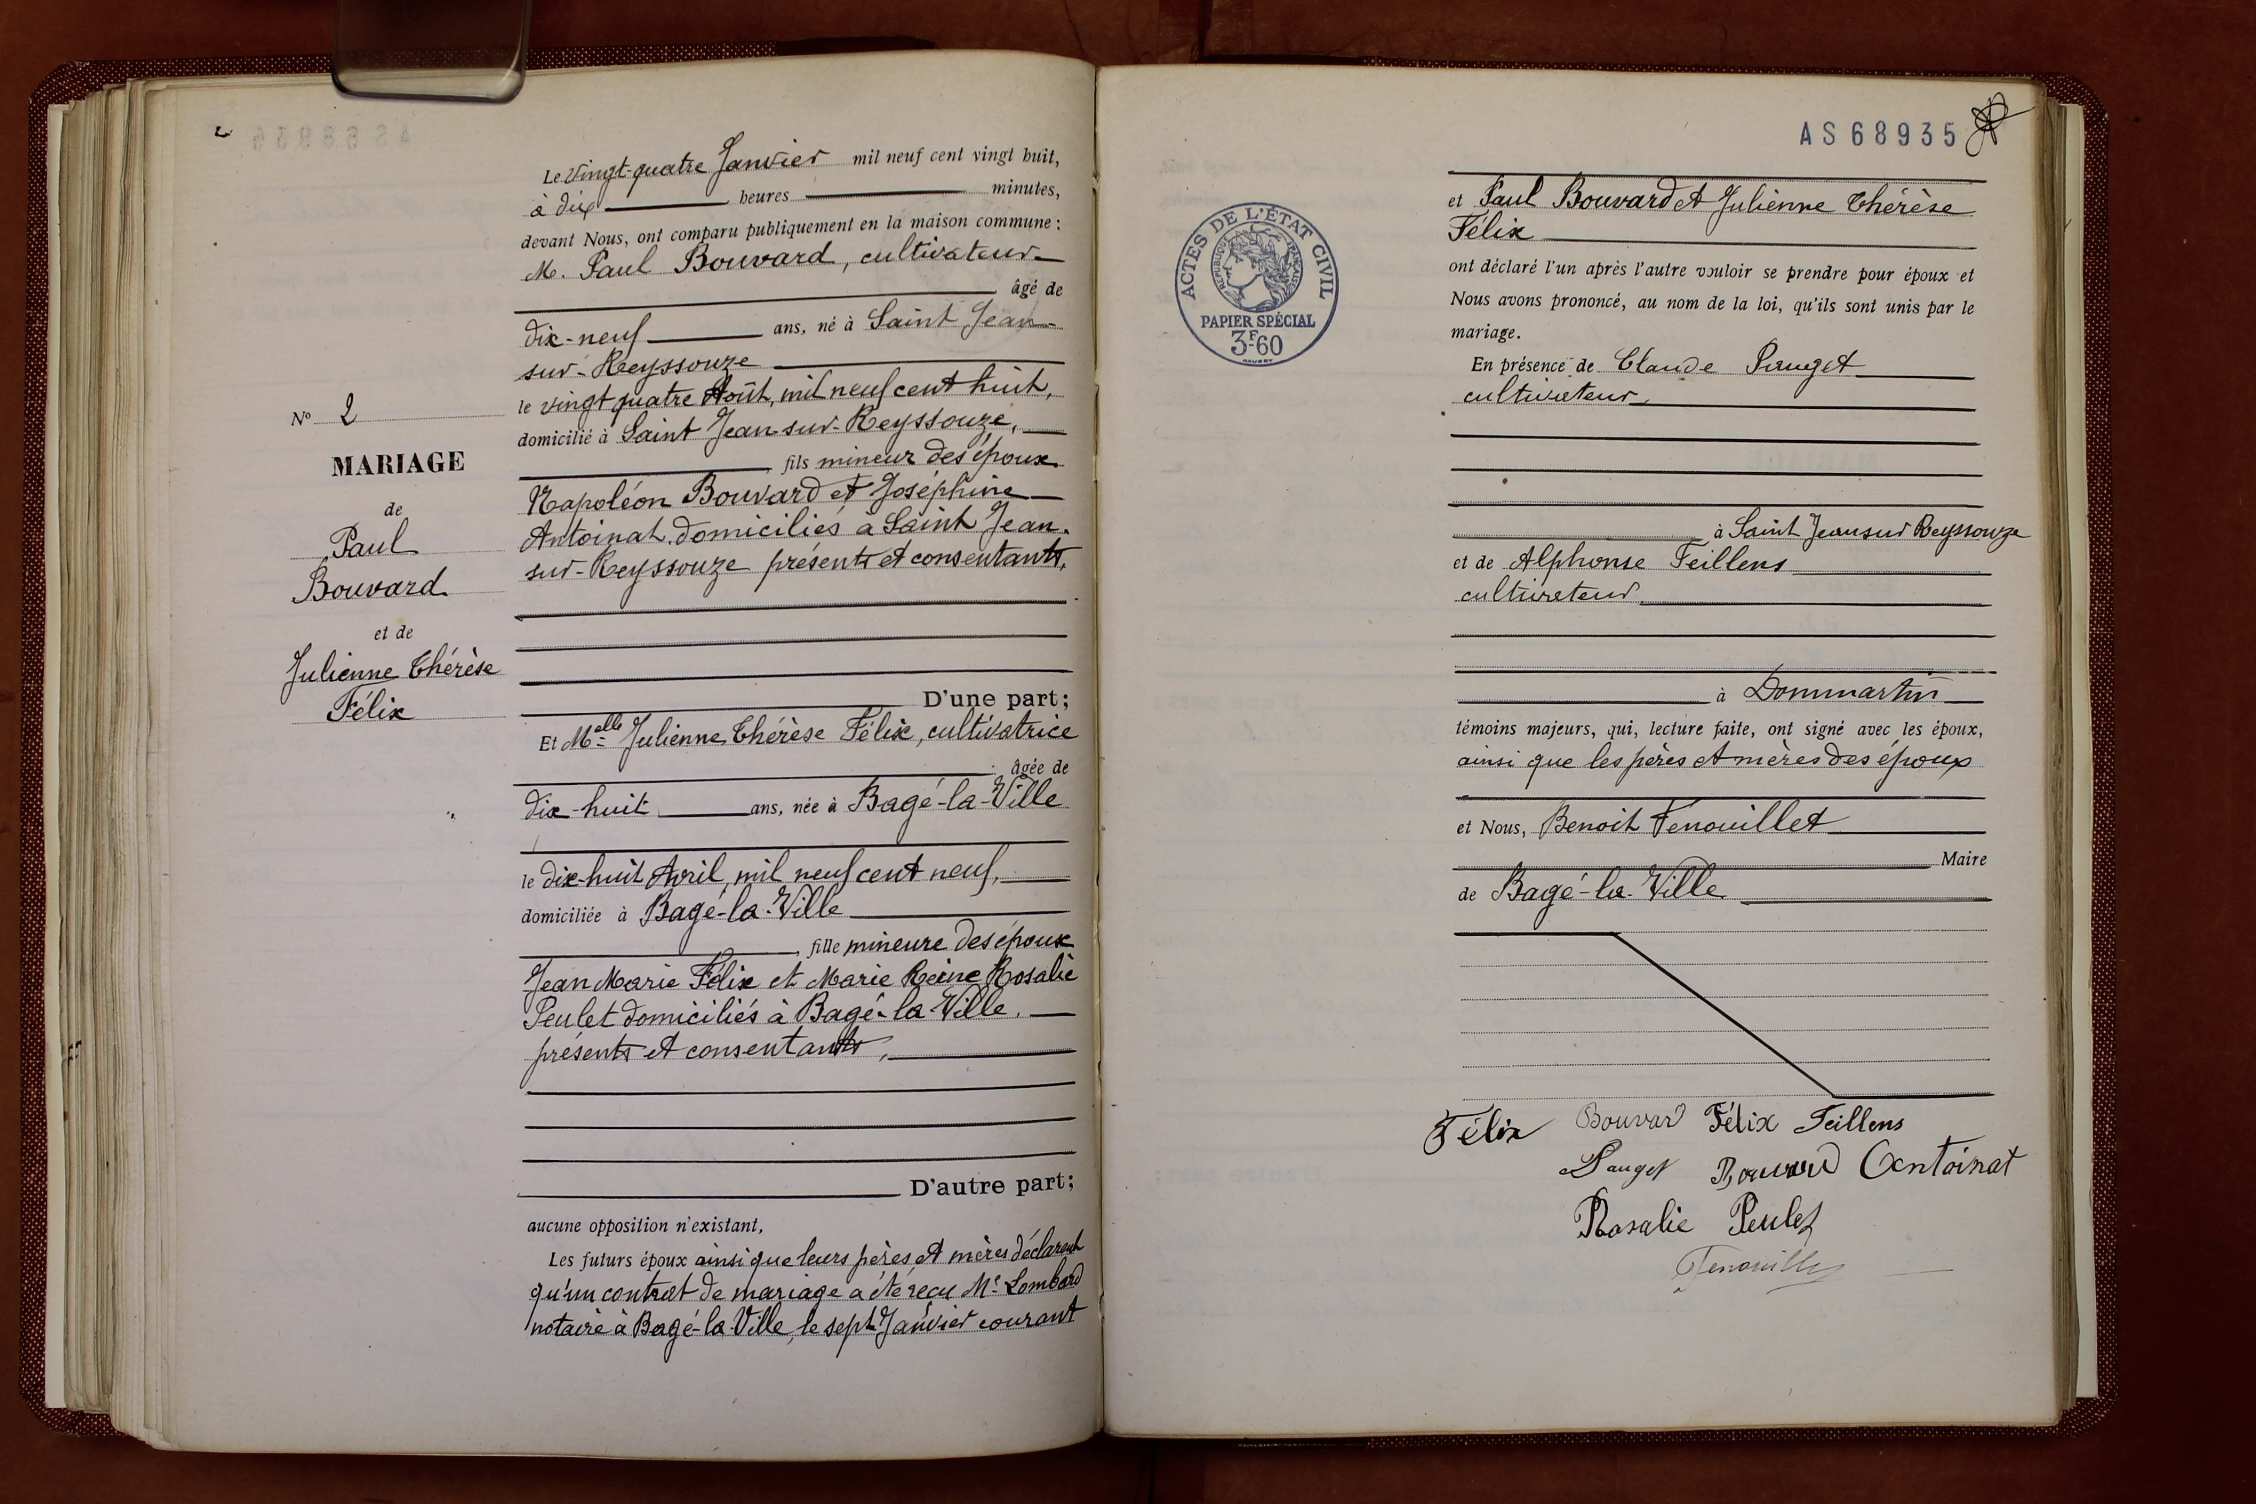 Le vingt-quatre Janvier mil neuf cent vingt huit,
à dix heures minutes,
devant Nous, ont comparu publiquement en la maison commune :
M. Paul Bouvard, cultivateur
âgé de
dix-neuf ans, né à Saint Jean-
sur-Reyssouze
le vingt quatre Août, mil neuf cent huit,
domicilié à Saint Jean-sur-Reyssouze,
fils mineur des époux
Napoléon Bouvard et Joséphine
Antoinat domiciliés à Saint Jean-
sur-Reyssouze présents et consentants,
D'une part;
Et Melle Julienne Thérèse Félix, cultivatrice
âgée de
dix-huit ans, née à Bagé-la-Ville
le dix-huit Avril, mil neuf cent neuf,
domiciliée à Bagé-la-Ville
, fille mineure des époux
Jean Marie Félix et Marie Reine Rosalie
Peulet domiciliés à Bagé-la-Ville,
présents et consentants,
D'autre part;
aucune opposition n'existant,
Les futurs époux ainsi que leurs pères et mères déclarent
qu'un contrat de mariage a été reçu Me Lombard
notaire à Bagé-la-Ville, le sept Janvier courant
No 2
MARIAGE
de
Paul
Bouvard
et de
Julienne Thérèse
Félix
AS 68935
ACTES DE L'ÉTAT CIVIL
RÉPUBLIQUE FRANÇAISE
PAPIER SPÉCIAL
3F60
et Paul Bouvard et Julienne Thérèse
Félix
ont déclaré l'un après l'autre vouloir se prendre pour époux et
Nous avons prononcé, au nom de la loi, qu'ils sont unis par le
mariage.
En présence de Claude Pauget
cultivateur,
à Saint Jean sur Reyssouze
et de Alphonse Feillens
cultivateur
à Dommartin
témoins majeurs, qui, lecture faite, ont signé avec les époux,
ainsi que les pères et mères des époux
et Nous, Benoit Fenouillet
Maire
de Bagé-la-Ville
Félix Bouvard Félix Feillens
Pauget Bouvard Antoinat
Rosalie Peulet
Fenouillet